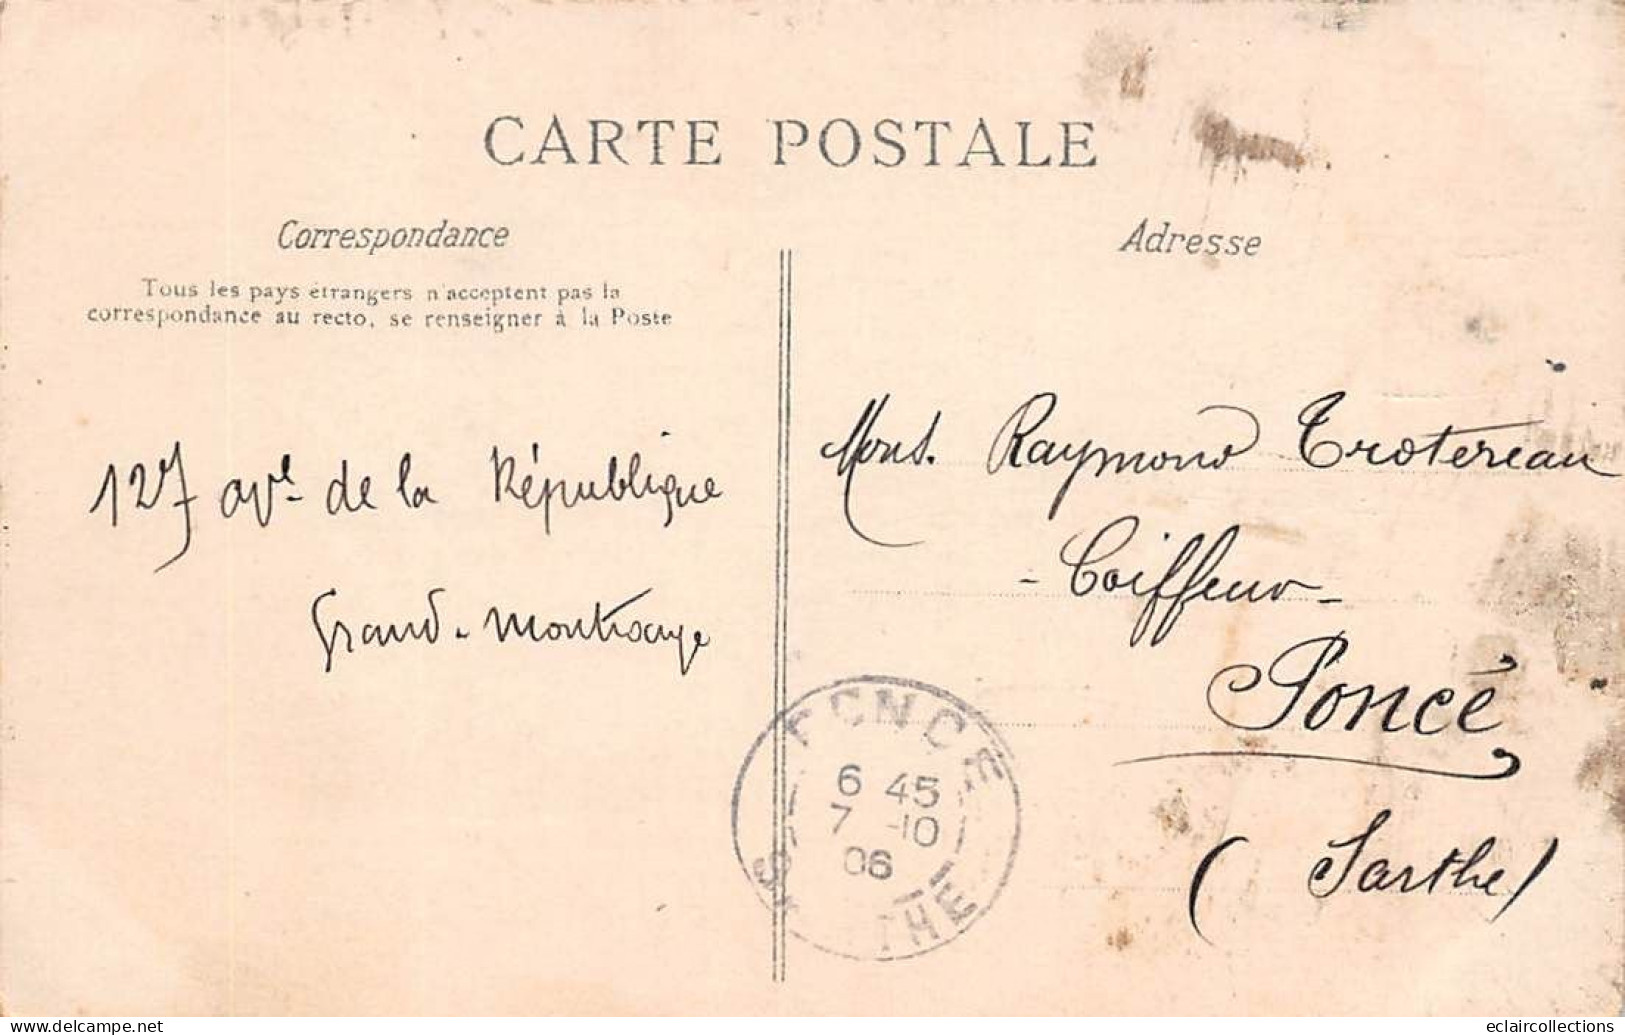 CARTE POSTALE
Correspondance
Tous les pays étrangers n'acceptent pas la
correspondance au recto, se renseigner à la Poste
127 ave de la République
Grand-Montrouge
Adresse
Mons. Raymond Trotereau
- Coiffeur -
Poncé
(Sarthe)
PONCÉ
6 45
7 -10
06
SARTHE
www.delcampe.net
eclaircollections